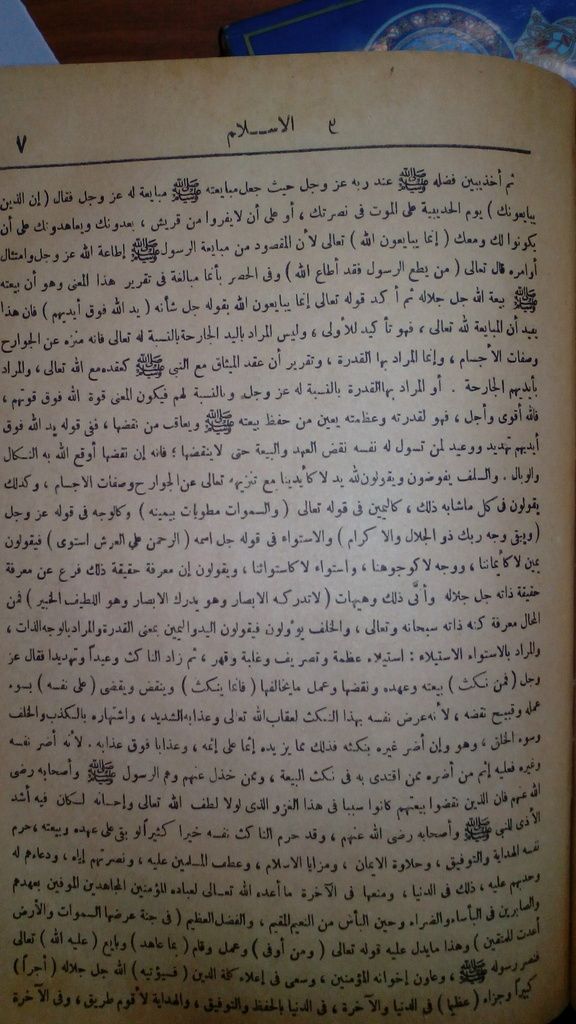 ٧ الاســلام ٣
ثم أخذ يبين فضله ﷺ عند ربه عز وجل حيث جعل مبايعته ﷺ مبايعة له عز وجل فقال ( إن الذين
يبايعونك ) يوم الحديبية على الموت فى نصرتك ، أو على أن لايفروا من قريش ، يعدونك ويعاهدونك على أن
يكونوا لك ومعك ( إنما يبايعون الله ) تعالى لأن المقصود من مبايعة الرسول ﷺ إطاعة الله عز وجل وامتثال
أوامره قال تعالى ( من يطع الرسول فقد أطاع الله ) وفى الحصر بأنما مبالغة فى تقرير هذا المعنى وهو أن بيعته
ﷺ بيعة الله جل جلاله ثم أكد قوله تعالى إنما يبايعون الله بقوله جل شأنه ( يد الله فوق أيديهم ) فان هذا
يفيد أن المبايعة لله تعالى ، فهو تأكيد للأولى ، وليس المراد باليد الجارحة بالنسبة له تعالى فانه منزه عن الجوارح
وصفات الأجسام ، وإنما المراد بها القدرة ، وتقرير أن عقد الميثاق مع النبى ﷺ كعقده مع الله تعالى ، والمراد
بأيديهم الجارحة . أو المراد بها القدرة بالنسبة له عز وجل وبالنسبة لهم فيكون المعنى قوة الله فوق قوتهم ،
فالله أقوى وأجل ، فهو لقدرته وعظمته يعين من حفظ بيعته ﷺ ويعاقب من نقضها ، ففى قوله يد الله فوق
أيديهم تهديد ووعيد لمن تسول له نفسه نقض العهد والبيعة حتى لاينقضها ؛ فانه إن نقضها أوقع الله به النكال
والوبال . والسلف يفوضون ويقولون لله يد لا كأيدينا مع تنزيهه تعالى عن الجوارح وصفات الاجسام ، وكذلك
يقولون فى كل ماشابه ذلك ، كاليمين فى قوله تعالى ( والسموات مطويات بيمينه ) وكالوجه فى قوله عز وجل
( ويبقى وجه ربك ذو الجلال والاكرام ) والاستواء فى قوله جل اسمه ( الرحمن على العرش استوى ) فيقولون
يمين لا كأيماننا ، ووجه لا كوجوهنا ، واستواء لا كاستوائنا ، ويقولون إن معرفة حقيقة ذلك فرع عن معرفة
حقيقة ذاته جل جلاله وأنى ذلك وهيهات ( لا تدركه الابصار وهو يدرك الابصار وهو اللطيف الخبير ) فمن
المحال معرفة كنه ذاته سبحانه وتعالى ، والخلف يؤولون فيقولون اليد واليمين بمعنى القدرة والمراد بالوجه الذات ،
والمراد بالاستواء الاستيلاء : استيلاء عظمة وتصريف وغلبة وقهر ، ثم زاد الناكث وعيداً وتهديدا فقال عز
وجل ( فمن نكث ) بيعته وعهده ونقضها وعمل مايخالفها ( فانما ينكث ) وينقض ويقضى ( على نفسه ) بسوء
عمله وقبيح نقضه ، لأنه عرض نفسه بهذا النكث لعقاب الله تعالى وعذابه الشديد ، واشتهاره بالكذب والخلف
وسوء الخلق ، وهو وإن أضر غيره بنكثه فذلك مما يزيده إثما على إثمه ، وعذابا فوق عذابه . لأنه أضر نفسه
وغيره فعليه إثم من أضره ممن اقتدى به فى نكث البيعة ، وممن خذل عنهم وهم الرسول ﷺ وأصحابه رضى
الله عنهم فان الذين نقضوا بيعتهم كانوا سببا فى هذا الغزو الذى لولا لطف الله تعالى وإحسانه لكان فيه أشد
الأذى للنبى ﷺ وأصحابه رضى الله عنهم ، وقد حرم الناكث نفسه خيرا كثيراً لو بقى على عهده وبيعته ، حرم
نفسه الهداية والتوفيق ، وحلاوة الايمان ، ومزايا الاسلام ، وعطف المسلمين عليه ، ونصرتهم إياه ، ودعاءهم له
وحدبهم عليه ، ذلك فى الدنيا ، ومنعها فى الآخرة ما أعده الله تعــالى لعباده المؤمنين المجاهدين الموفين بعهدهم
والصابرين فى البأساء والضراء وحين البأس من النعيم المقيم ، والفضل العظيم ( فى جنة عرضها السموات والأرض
أعدت للمتقين ) وهذا مايدل عليه قوله تعالى ( ومن أوفى ) وعمل وقام ( بما عاهد ) وبايع ( عليه الله ) تعالى
فنصر رسوله ﷺ ، وعاون إخوانه المؤمنين ، وسعى فى إعلاء كلمة الدين ( فسيؤتيه ) الله جل جلاله ( أجراً )
كبيراً وجزاء ( عظيما ) فى الدنيا والآخرة ، فى الدنيا بالحفظ والتوفيق ، والهداية لأقوم طريق ، وفى الآخرة